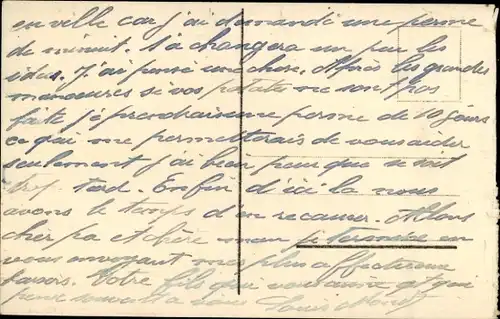 en ville car j'ai demandé une perme
de minuit. Sa changera un peu les
idées. J'ai pensé une chose. Après les grandes
manoeuvres si vos patates ne sont pas
faite je prendrais une perme de 10 jours
ce qui me permetterais de vous aider
seulement j'ai bien peur que se soit
trop tard. Enfin d'ici la nous
avons le temps d'en recauser. Allons
cher pa et chère man je termine en
vous envoyant mes plus affectueux
baisers. Votre fils qui vous aime et qui
pense souvent a vous Louis